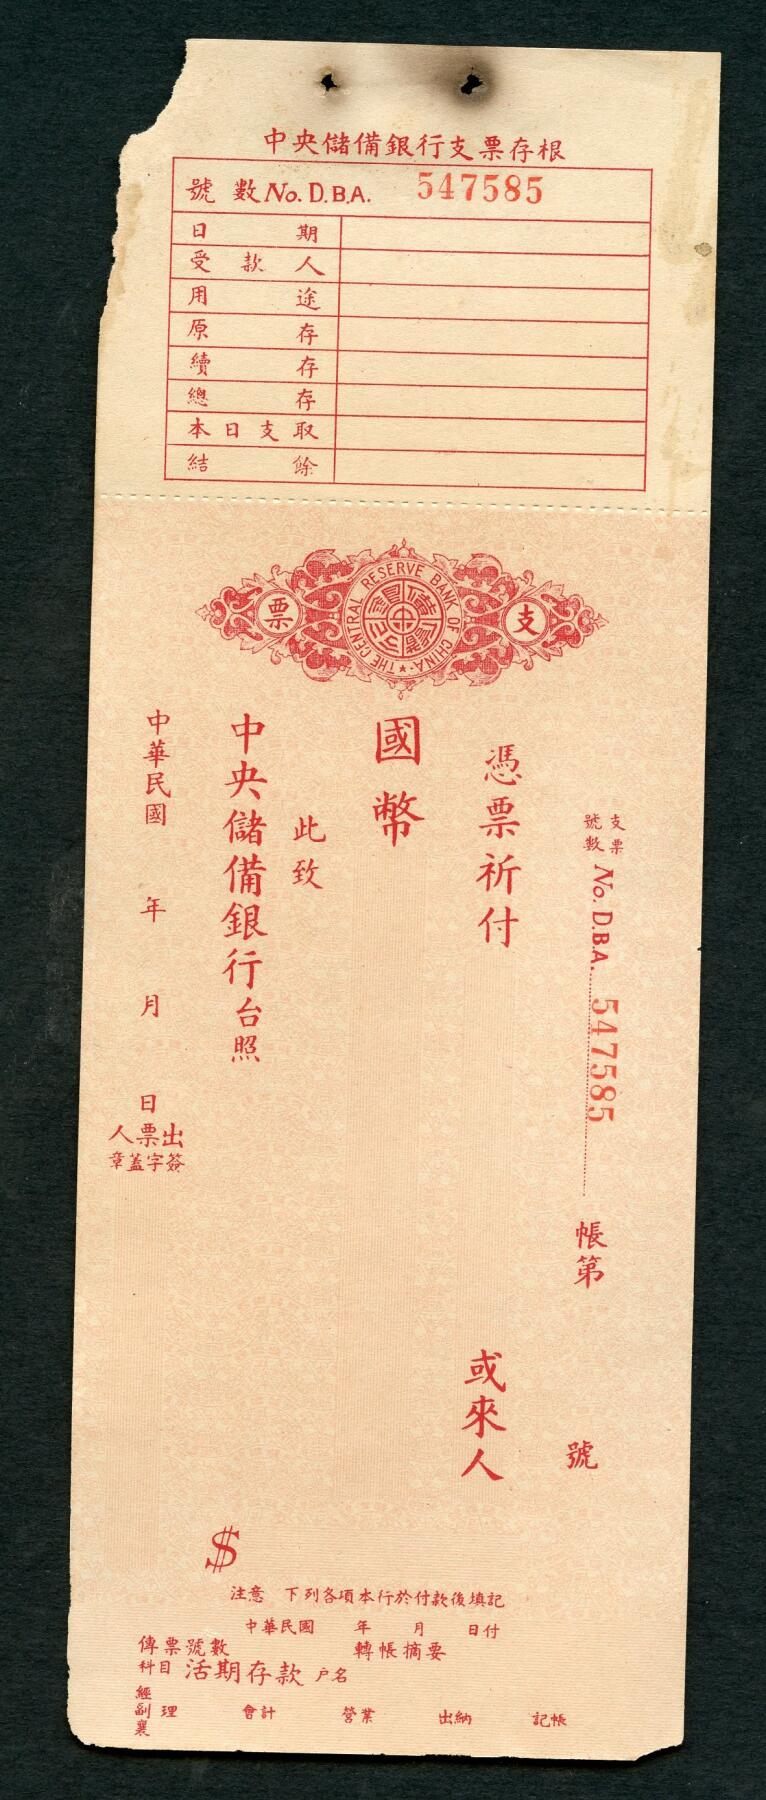 中央儲備銀行支票存根
號數 No. D.B.A. 547585
日期
受款人
用途
原存
續存
總存
本日支取
結餘
THE CENTRAL RESERVE BANK OF CHINA
中央儲備銀行
支票
支票號數 No. D.B.A. 547585 帳第 號
憑票祈付 或來人
國幣
此致
中央儲備銀行台照
中華民國 年 月 日
出票人
簽字蓋章
$
注意 下列各項本行於付款後填記
中華民國 年 月 日付
傳票號數 轉帳摘要
科目 活期存款 戶名
經副襄理 會計 營業 出納 記帳